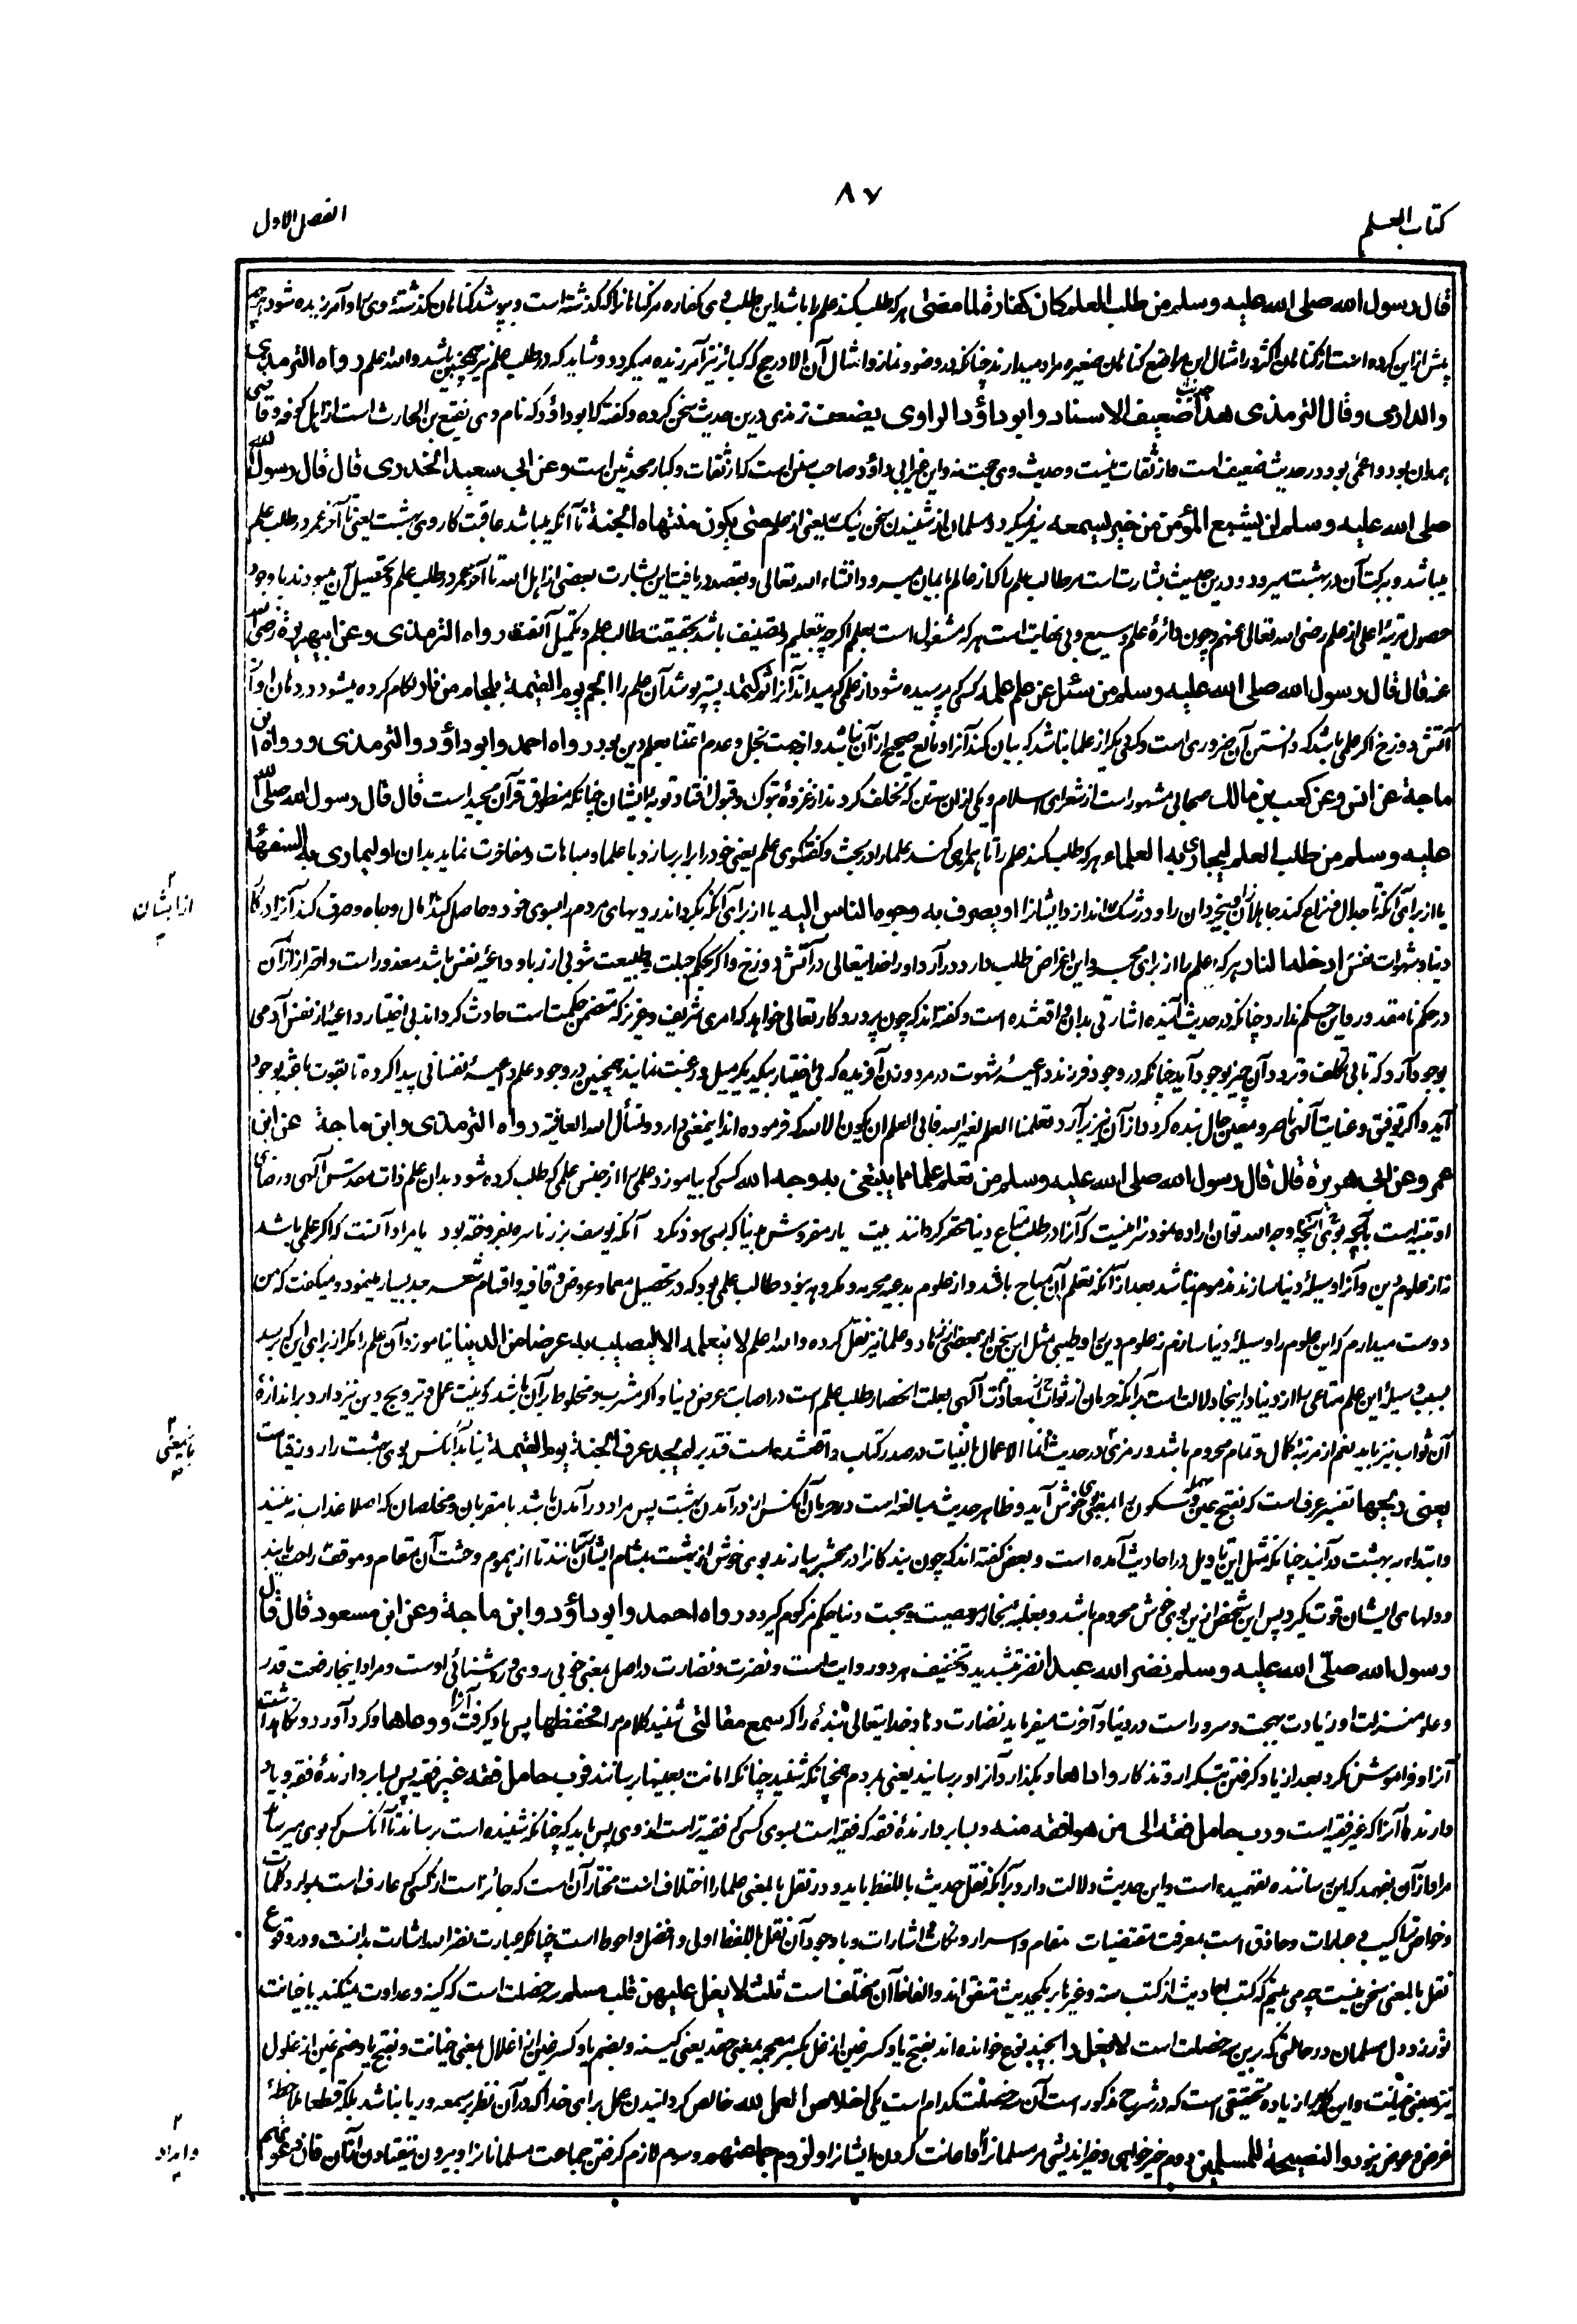 ۸۷
کتاب العلم
الفصل الاول
قال رسول الله صلی الله علیه وسلم من طلب العلم کان کفارة لما مضی هرکه طلب کند علم را باشد این طلب وی کفاره مر گناهانرا که گذشته است و بپوشد گناهان گذشتهٔ وی را و آمرزیده شود هرچه
پیش ازین کرده است از گناهان و اکثر در امثال این مواضع گناهان صغیره مراد میدارند چنانکه در وضو و نماز و امثال آن الا در حج که کبائر نیز آمرزیده میگردد و شاید که در طلب علم نیز همچنین باشد والله اعلم رواه الترمذی
والدارمی وقال الترمذی هذا حدیث ضعیف الاسناد وابو داؤد الراوی یضعف ترمذی درین حدیث سخن کرده و گفته که ابو داؤد که نام وی نفیع بن الحارث است از اهل کوفه و قاضی
همدان بود و اعمی بود در حدیث ضعیف است و از ثقات نیست و حدیث وی حجت نه و این غیر ابی داؤد صاحب سنن است که از ثقات و کبار محدثین است وعن ابی سعید الخدری قال قال رسول الله
صلی الله علیه وسلم لن یشبع المؤمن من خیر یسمعه سیر نمیگردد مسلمان از شنیدن سخن نیک یعنی از علم حتی یکون منتهاه الجنة تا آنکه میباشد عاقبت کار وی بهشت یعنی تا آخر عمر در طلب علم
میباشد و ببرکت آن در بهشت میرود و درین حدیث بشارت است مر طالب علم را که از عالم با ایمان میرود انشاء الله تعالی و بقصد دریافت این بشارت بعضی از اهل الله تا آخر عمر در طلب علم و تحصیل آن میبودند با وجود
حصول مرتبهٔ اعلی از علم رضی الله تعالی عنهم و چون دائرهٔ علم وسیع و بی نهایت است هر که مشغول است بعلم اگرچه بتعلیم و تصنیف باشد بحقیقت طالب علم و تکمیل آنست رواه الترمذی وعن ابی هریرة رضی الله
عنه قال قال رسول الله صلی الله علیه وسلم من سئل عن علم علمه کسی که پرسیده شود از علمی که میداند آنرا ثم کتمه پستر بپوشد آن علم را الجم یوم القیمة بلجام من نار لگام کرده میشود در دهان او از
آتش دوزخ اگر علمی باشد که دانستن آن ضروری است و کسی دیگر از علما نباشد که بیان کند آنرا و مانع صحیح از آن نباشد و از جهت بخل و عدم اعتنا بعلم دین بود رواه احمد وابو داؤد والترمذی ورواه ابن
ماجة عن انس وعن کعب بن مالک صحابی مشهور است از شعرای اسلام و یکی از ان سه تن که تخلف کردند از غزوهٔ تبوک و قبول افتاد توبهٔ ایشان چنانکه منطوق قرآن مجید است قال قال رسول الله صلی الله
علیه وسلم من طلب العلم لیجاری به العلماء هر که طلب کند علم را تا همراهی کند علما را در بحث و گفتگوی علم یعنی خود را برابر سازد با علما و مباهات و مفاخرت نماید بدان او لیماری به السفهاء
یا از برای آنکه تا جدال و نزاع کند جاهلان و بیخردان را و در شک اندازد ایشانرا او یصرف به وجوه الناس الیه یا از برای آنکه بگرداند رویهای مردم را بسوی خود و حاصل کند مال و جاه و صرف کند آنرا در
دنیا و شهوات نفس ادخله الله النار هر که علم را از برای محبوب این اغراض طلب دارد در آرد او را خدایتعالی در آتش دوزخ و اگر بحکم جبلت و طبیعت شوبی از ریا و داعیهٔ نفس باشد معذور است و احتراز از آن
در حکم نامقدور و این حکم ندارد چنانکه در حدیث آینده اشارتی بدان واقع شده است و گفته اند که چون پروردگار تعالی خواهد که امری شریف و عزیز که متضمن حکمت است حادث گرداند بی اختیار داعیهٔ از نفس آدمی
بوجود آرد که تا بی تکلف و تردد آن چیز بوجود آید چنانکه در وجود فرزند داعیهٔ شهوت در مرد و زن آفریده که بی اختیار بیکدیگر میل و رغبت نمایند همچنین در وجود علم داعیهٔ نفسانی پیدا کرده تا بقوت باعثه بوجود
آید و اگر توفیق و عنایت الهی ناصر و معین حال بنده گردد از آن نیز برآرد تعلمنا العلم لغیر الله فابی العلم ان یکون الا لله که فرموده اند این معنی دارد و نسأل الله العافیة رواه الترمذی وابن ماجة عن ابن
عمر وعن ابی هریرة قال قال رسول الله صلی الله علیه وسلم من تعلم علما مما یبتغی به وجه الله کسی که بیاموزد علمی را از جنس علمی که طلب کرده شود بدان علم ذات مقدس الهی و رضای
او تنبیه است بآنچه وجه الله توان اراده نمود سزا نیست که آنرا در طلب متاع دنیا محقر گردانند بیت یار مفروش بدنیا که بسی سود نکرد آنکه یوسف بزر ناسره بفروخته بود یا مراد آنست که اگر علمی باشد
نه از علوم دین و آنرا وسیلهٔ دنیا سازند مذموم نباشد بعد از آنکه تعلم آن مباح باشد و از علوم بدعیه محرمه و مکروهه نبود طالب علمی بود که در تحصیل معما و عروض و قافیه و اقسام شعر جد بسیار مینمود و میگفت که من
دوست میدارم که این علوم را وسیلهٔ دنیا سازم نه علوم دین را و طیبی مثل این سخن از بعضی زهاد و علما نیز نقل کرده والله اعلم لا یتعلمه الا لیصیب به عرضا من الدنیا نیاموزد آن علم را مگر از برای این که برسد
بسبب وسیلهٔ این علم متاعی را از دنیا و اینجا دلالت است بر آنکه حرمان از ثواب و سعادت آلهی بعلت انحصار طلب علم است در اصابت عرض دنیا و اگر مشوب و مخلوط بر آن باشد که نیت عمل و ترویج دین نیز دارد بر اندازهٔ
آن ثواب نیز یابد نعم از مرتبهٔ کمال و تمام محروم باشد و رمزی در حدیث انما الاعمال بالنیات در صدر کتاب واقع شده است فتدبر لم یجد عرف الجنة یوم القیمة نیابد آنکس بوی بهشت را روز قیامت
یعنی ریحها تفسیر عرف است که بفتح عین مهمله و سکون را بمعنی بوی خوش آید و ظاهر حدیث مبالغه است در حرمان آنکس از درآمدن بهشت پس مراد درآمدن باشد با مقربان و مخلصان که اصلا عذاب نه بینند
وابتداء به بهشت درآیند چنانکه مثل این تاویل در احادیث آمده است و بعض گفته اند که چون بندگان را در محشر بیارند بوی خوش از بهشت بمشام ایشان رسانند تا از هموم و وحشت آن مقام و موقف راحت یابند
و دلهای ایشان قوت گیرد پس این شخص ازین بوی خوش محروم باشد و بغلبهٔ بخار معصیت و محبت دنیا حکم مزکوم گیرد رواه احمد وابو داؤد وابن ماجة وعن ابن مسعود قال قال
رسول الله صلی الله علیه وسلم نضر الله عبدا نضر بتشدید و تخفیف هر دو روایت است و نضرت و نضارت در اصل بمعنی خوبی روی و روشنائی اوست و مراد اینجا رفعت قدر
و علو منزلت او و زیادت بهجت و سرور است در دنیا و آخرت میفرماید نضارت دهاد خدایتعالی بندهٔ را که سمع مقالتی شنید کلام مرا فحفظها پس یاد گرفت آنرا ووعاها و گرد آورد و نگاهداشت
آنرا و فراموش نکرد بعد از یاد گرفتن بتکرار و تذکار واداها و بگذارد آنرا و برساند یعنی بمردم همچنانکه شنید چنانکه امانت بعینها رسانند فرب حامل فقه غیر فقیه پس بسا بردارندهٔ فقه و یاد
دارندهٔ آنرا که غیر فقیه است ورب حامل فقه الی من هو افقه منه و بسا بردارندهٔ فقه که فقیه است بسوی کسی که فقیه تر است از وی پس باید که چنانکه شنیده است برساند تا آنکس که بوی میرسد
مراد از آن بفهمد که این رساننده نفهمیده است و این حدیث دلالت دارد بر آنکه نقل حدیث باللفظ باید و در نقل بالمعنی علما را اختلاف است مختار آن است که جائز است از کسی که عارف است بموارد کلمات
وخواص تراکیب و عبارات و حاذق است بمعرفت مقتضیات مقام و اسرار و نکات و اشارات و با وجود آن نقل باللفظ اولی و افضل و احوط است چنانکه عبارت نضر الله اشارت بدانست و در وقوع
نقل بالمعنی سخن نیست چه می بینیم که کتب احادیث از کتب سته و غیرها بر یکحدیث متفق اند و الفاظ آن مختلف است ثلث لا یغل علیهن قلب مسلم سه خصلت است که کینه و عداوت نمیکند یا خیانت
نورزد دل مسلمان در حالتی که برین سه خصلت است لا یغل را بچند نوع خوانده اند بفتح یا و کسر غین از غل بکسر معجمه بمعنی حقد یعنی کینه و بضم یا و کسر غین از اغلال بمعنی خیانت و بفتح یا و ضم غین از غلول
نیز بمعنی خیانت و این را زیاده تحقیقی است که در شرح مذکور است آن سه خصلت کدام است یکی اخلاص العمل لله خالص گردانیدن عمل برای خدا که در آن نظر بسمعه و ریا نباشد بلکه قطعا ملاحظهٔ
غرض و عوض نبود والنصیحة للمسلمین دوم خیر خواهی و خیر اندیشی مر مسلمانرا و اعانت کردن ایشانرا ولزوم جماعتهم و سوم لازم گرفتن جماعت مسلمانانرا و بیرون نیفتادن از ان فان دعوتهم
از ایشان
یعنی